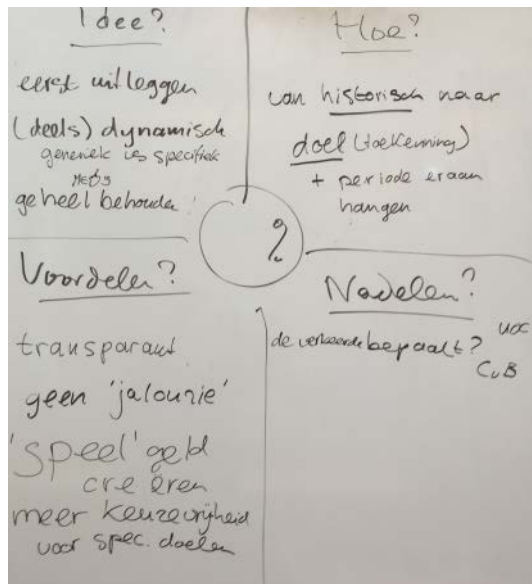 Idee?
eerst uitleggen
(deels) dynamisch
generiek vs specifiek
geheel behouden
Hoe?
van historisch naar
doel (toekenning)
+ periode eraan
hangen
?
Voordelen?
transparant
geen 'jalouzie'
'speel' geld
creëren
meer keuzevrijheid
voor spec. doelen
Nadelen?
de verkeerde bepaalt?
CvB